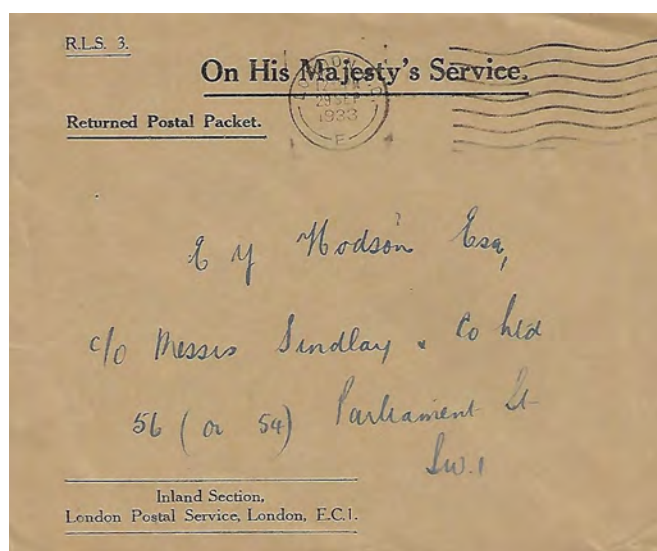 R.L.S. 3.
On His Majesty's Service.
LONDON
29 SEP
1933
F
Returned Postal Packet.
E Y Hodson Esq,
c/o Messrs Sindlay & Co Ltd
56 (or 54) Parliament St
S.W.1
Inland Section,
London Postal Service, London, E.C.1.